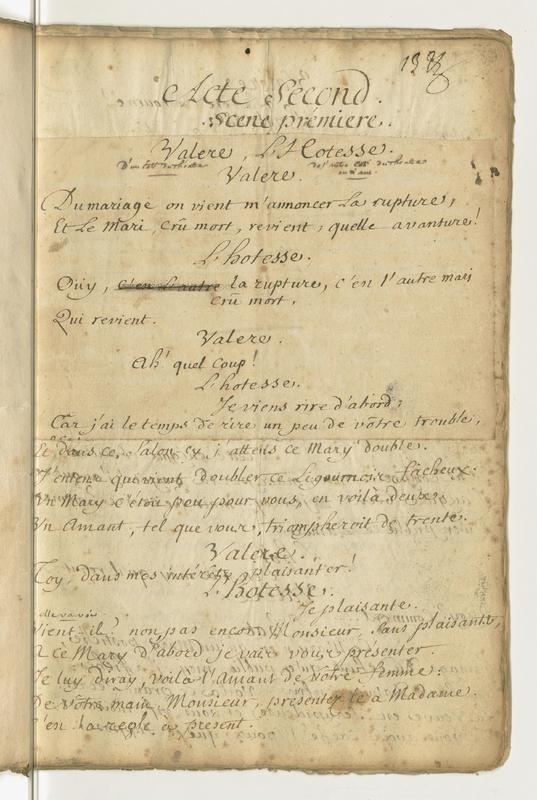 Acte Second.
Scene premiere.
Valere, L'Hotesse.
D'un côté du theatre
de l'autre côté du theatre
Valere.
Du mariage on vient m'annoncer La rupture,
Et Le Mari, crû mort, revient, quelle avanture!
L'hotesse.
Oüy, c'en L'autre la rupture, c'en l'autre mari
crû mort,
Qui revient.
Valere.
Ah! quel coup!
L'hotesse.
Je viens rire d'abord;
Car j'ai le temps de rire un peu de vôtre trouble,
Et dans ce Salon cy j'attens ce Mary double.
J'entens qui vient doubler ce Ligournois fâcheux.
Un Mary c'étoit peu pour vous, en voilà deux;
Un Amant, tel que vous, triompheroit de trente.
Valere.
Toy, dans mes intérêts, plaisanter!
L'hotesse.
Je plaisante.
elle va voir
Vient il? non pas encor. Monsieur, sans plaisanter,
A ce Mary d'abord je vais vous présenter.
Je luy diray, voilà l'Amant de vôtre femme:
De vôtre main, Monsieur, presentez le à Madame.
C'en la regle à present.